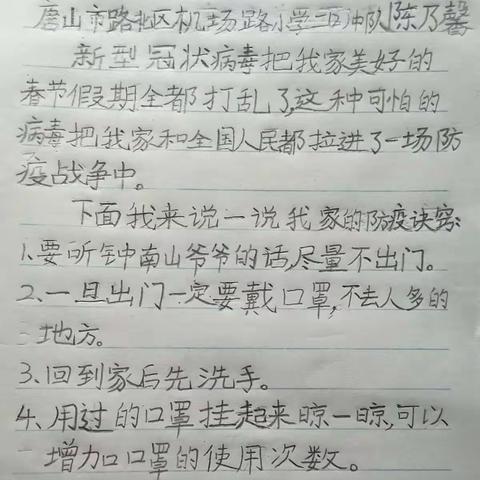 唐山市路北区机场路小学二四中队陈乃馨
新型冠状病毒把我家美好的
春节假期全都打乱了,这种可怕的
病毒把我家和全国人民都拉进了一场防
疫战争中。
下面我来说一说我家的防疫诀窍:
1.要听钟南山爷爷的话,尽量不出门。
2、一旦出门一定要戴口罩,不去人多的
地方。
3、回到家后先洗手。
4、用过的口罩挂起来晾一晾,可以
增加口罩的使用次数。